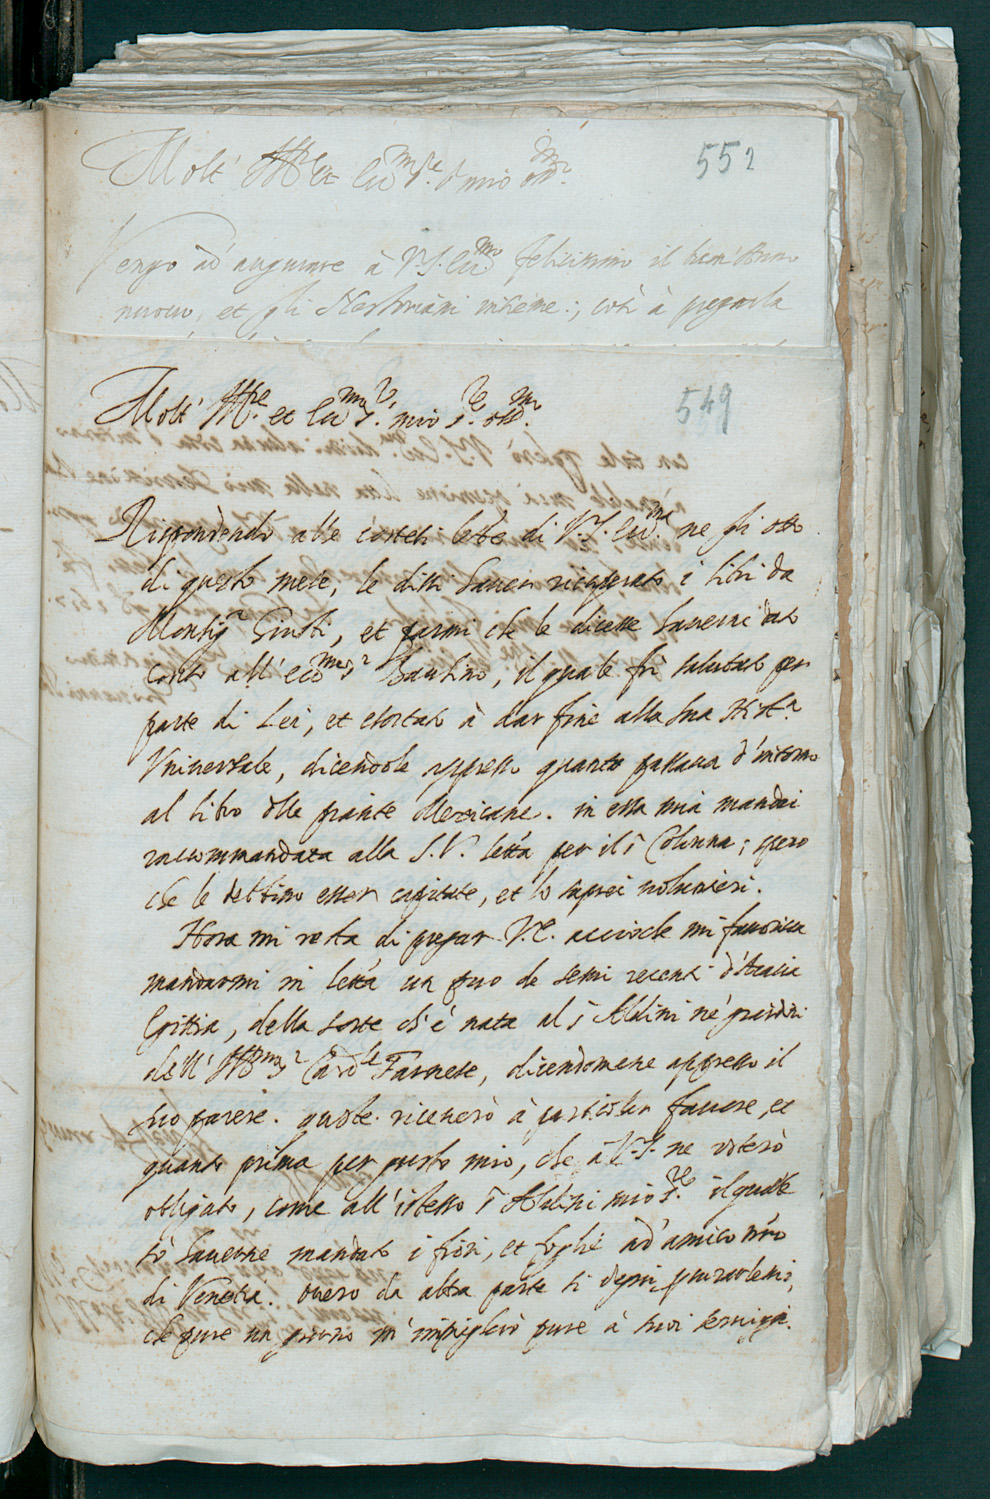 552
Molt' Ill.re et Ecc.mo S.re S. mio oss.mo
Vengo ad augurare à V.S. Ecc.ma felicissimo il Capo d'anno
nuovo, et gli Nestoriani insieme; così à pregarla
549
Molt' Ill.re et Ecc.mo S.r mio S.re oss.mo
Rispondendo alle cortesi lettre di V.S. Ecc.ma ne gli otto
di questo mese, le dissi haver ricuperato i libri da
Monsig.r Giusti, et parmi che le dicesse haverne dato
conto all' ecc.mo S.r Bauhino, il quale fù salutato per
parte di Lei, et esortato à dar fine alla sua Hist.a
Universale, dicendole appresso quanto passava d'intorno
al libro delle piante Mexicane. in essa mia mandai
raccommandata alla S.V. lett.a per il S.r Colonna; spero
che le debbino esser capitate, et lo saprei volentieri.
Hora mi resta di pregar V.E. acciochè mi favorisca
mandarmi in lett.a un paro de semi recenti d'Acacia
Egittia, della sorte ch'è nata al S.r Aldini ne' giardini
dell' Ill.mo S.r Card.le Farnese, dicendomene appresso il
suo parere. quale riceverò à particolar favore, et
quanto prima per gusto mio, che à V.S. ne resterò
obligato, come all' istesso S.r Aldini mio S.re il quale
sò haverne mandato i fiori, et foglie ad' amico n.ro
di Venetia. overo da altra parte si degni
che pure un giorno m' impiegherò pure à suoi servigii.